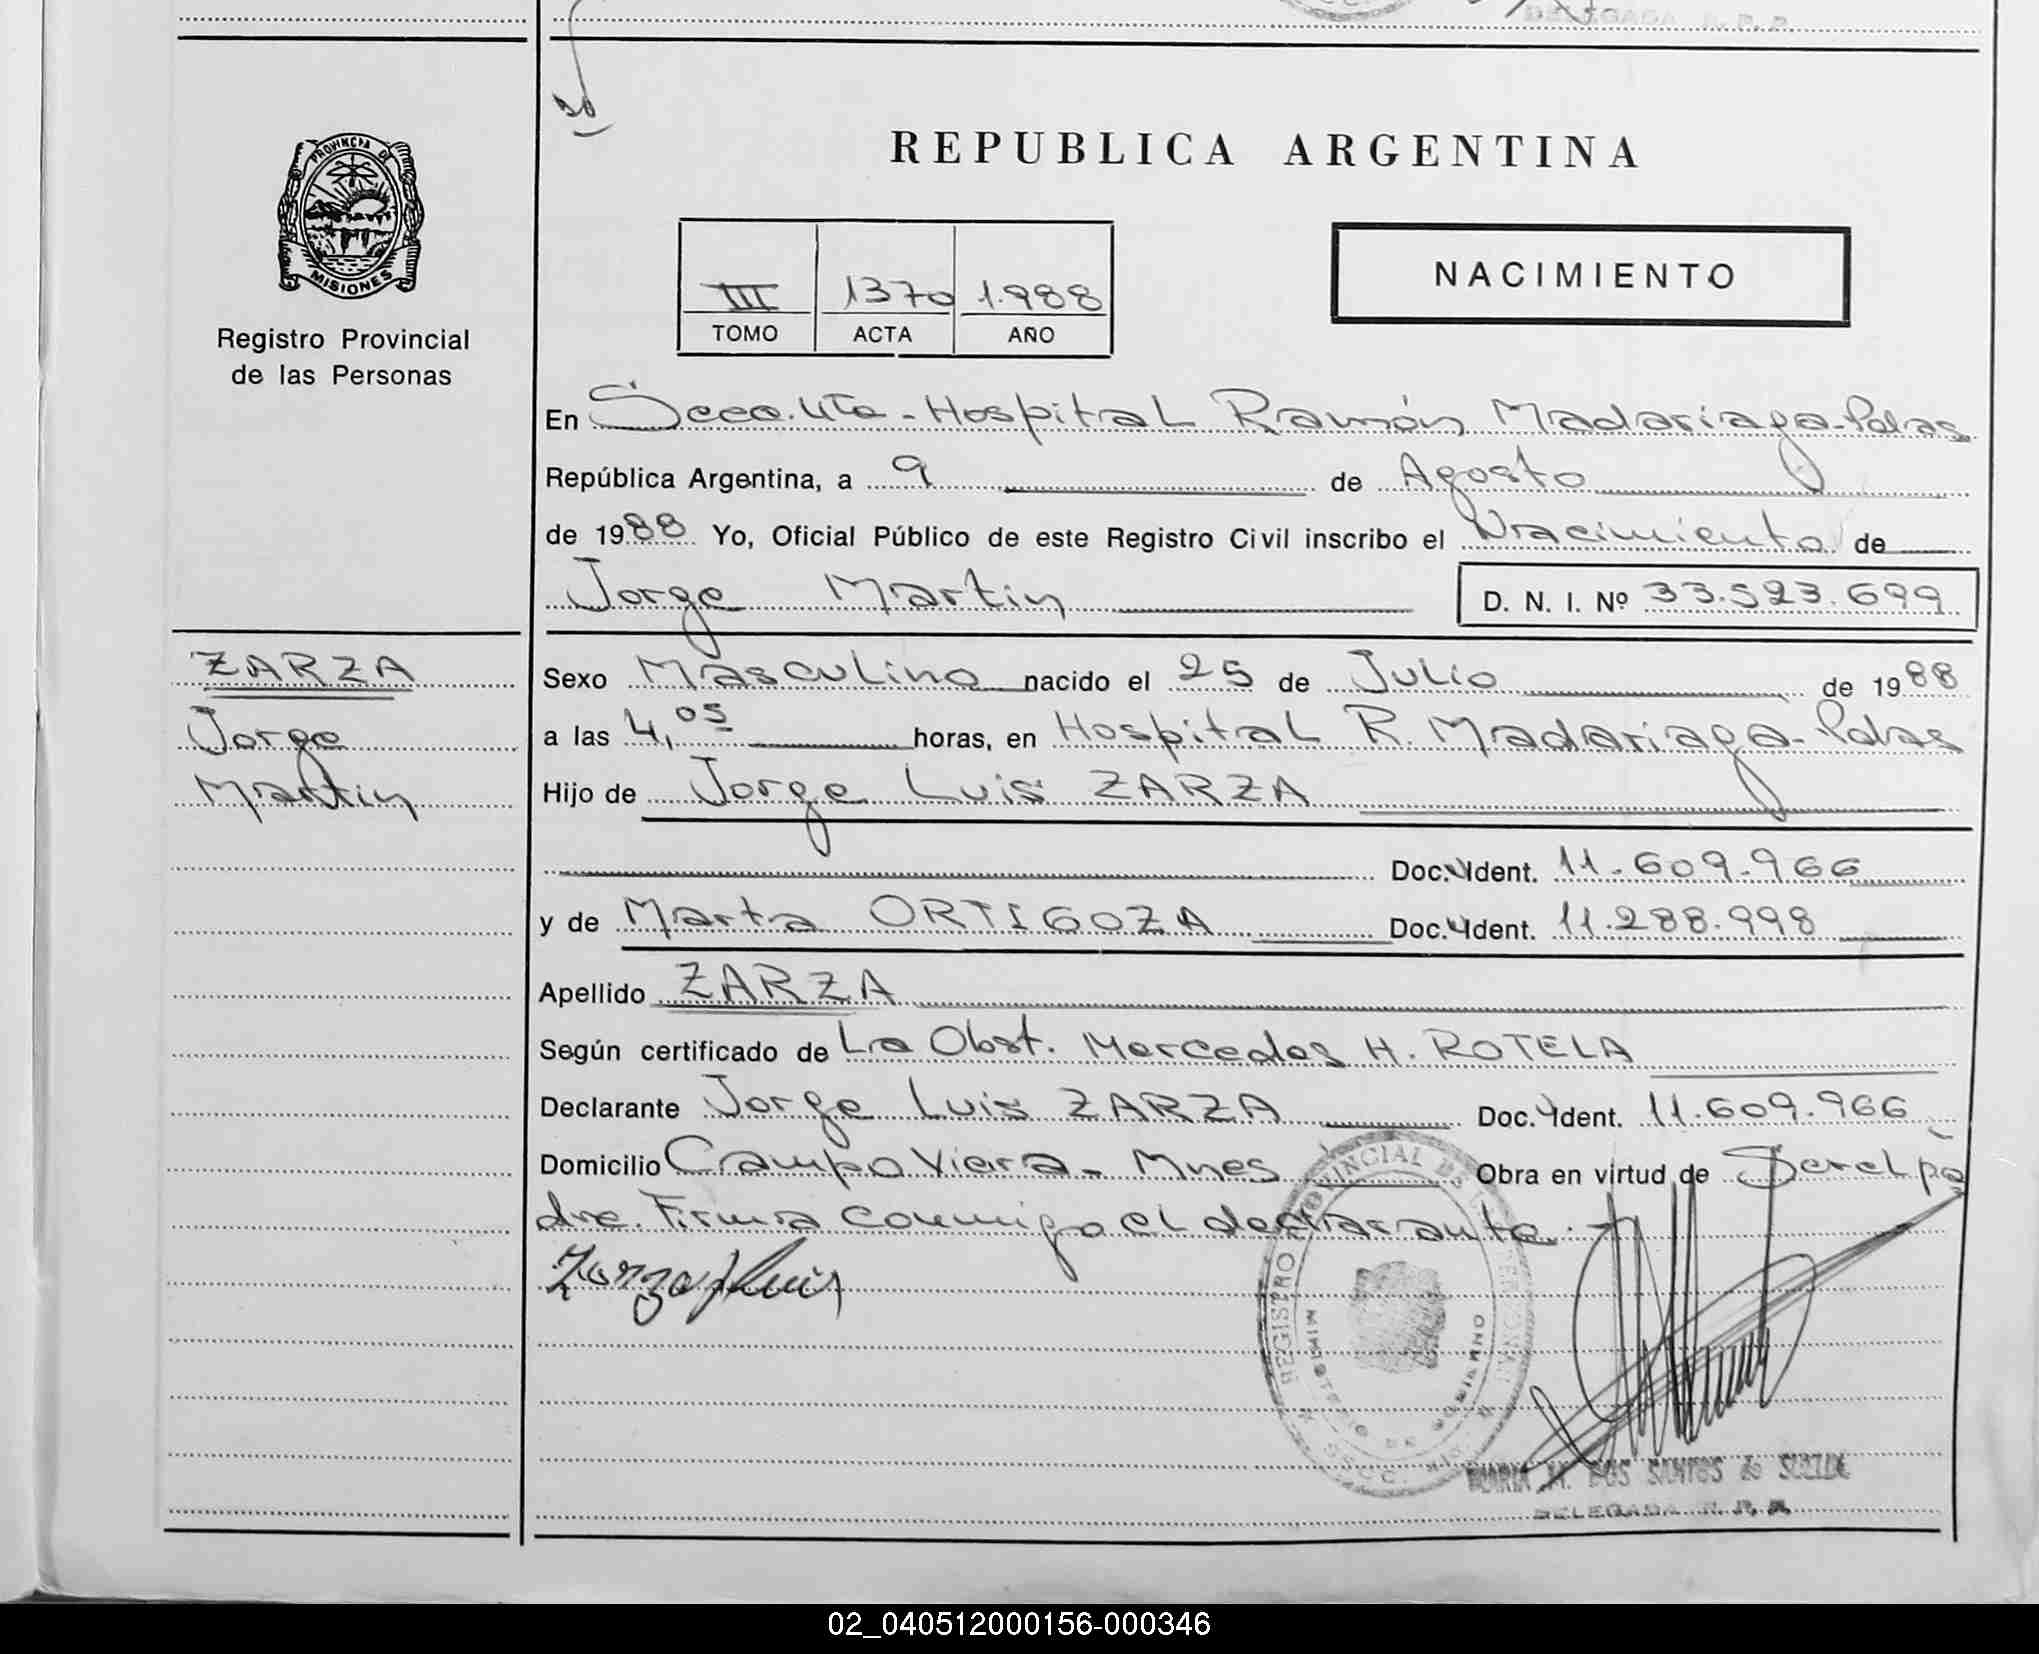 DELEGADA R. P. P.
PROVINCIA DE
MISIONES
Registro Provincial
de las Personas
REPUBLICA ARGENTINA
III 1370 1.988
TOMO ACTA AÑO
NACIMIENTO
En Secc. 4ta - Hospital Ramón Madariaga - Pdas
República Argentina, a 9 de Agosto
de 1988 Yo, Oficial Público de este Registro Civil inscribo el Nacimiento de
Jorge Martin D. N. I. Nº 33.523.699
ZARZA
Jorge
Martin
Sexo Masculino nacido el 25 de Julio de 1988
a las 4,05 horas, en Hospital R. Madariaga - Pdas
Hijo de Jorge Luis ZARZA
Doc. Ident. 11.609.966
y de Marta ORTIGOZA Doc. Ident. 11.288.998
Apellido ZARZA
Según certificado de La Obst. Mercedes H. ROTELA
Declarante Jorge Luis ZARZA Doc. Ident. 11.609.966
Domicilio Campo Viera - Mnes Obra en virtud de Ser el pa
dre. Firma conmigo el declarante.
Zarza J Luis
REGISTRO PROVINCIAL DE LAS PERSONAS
MINISTERIO DE GOBIERNO
MARIA M. DOS SANTOS de
DELEGADA R. P. P.
02_040512000156-000346